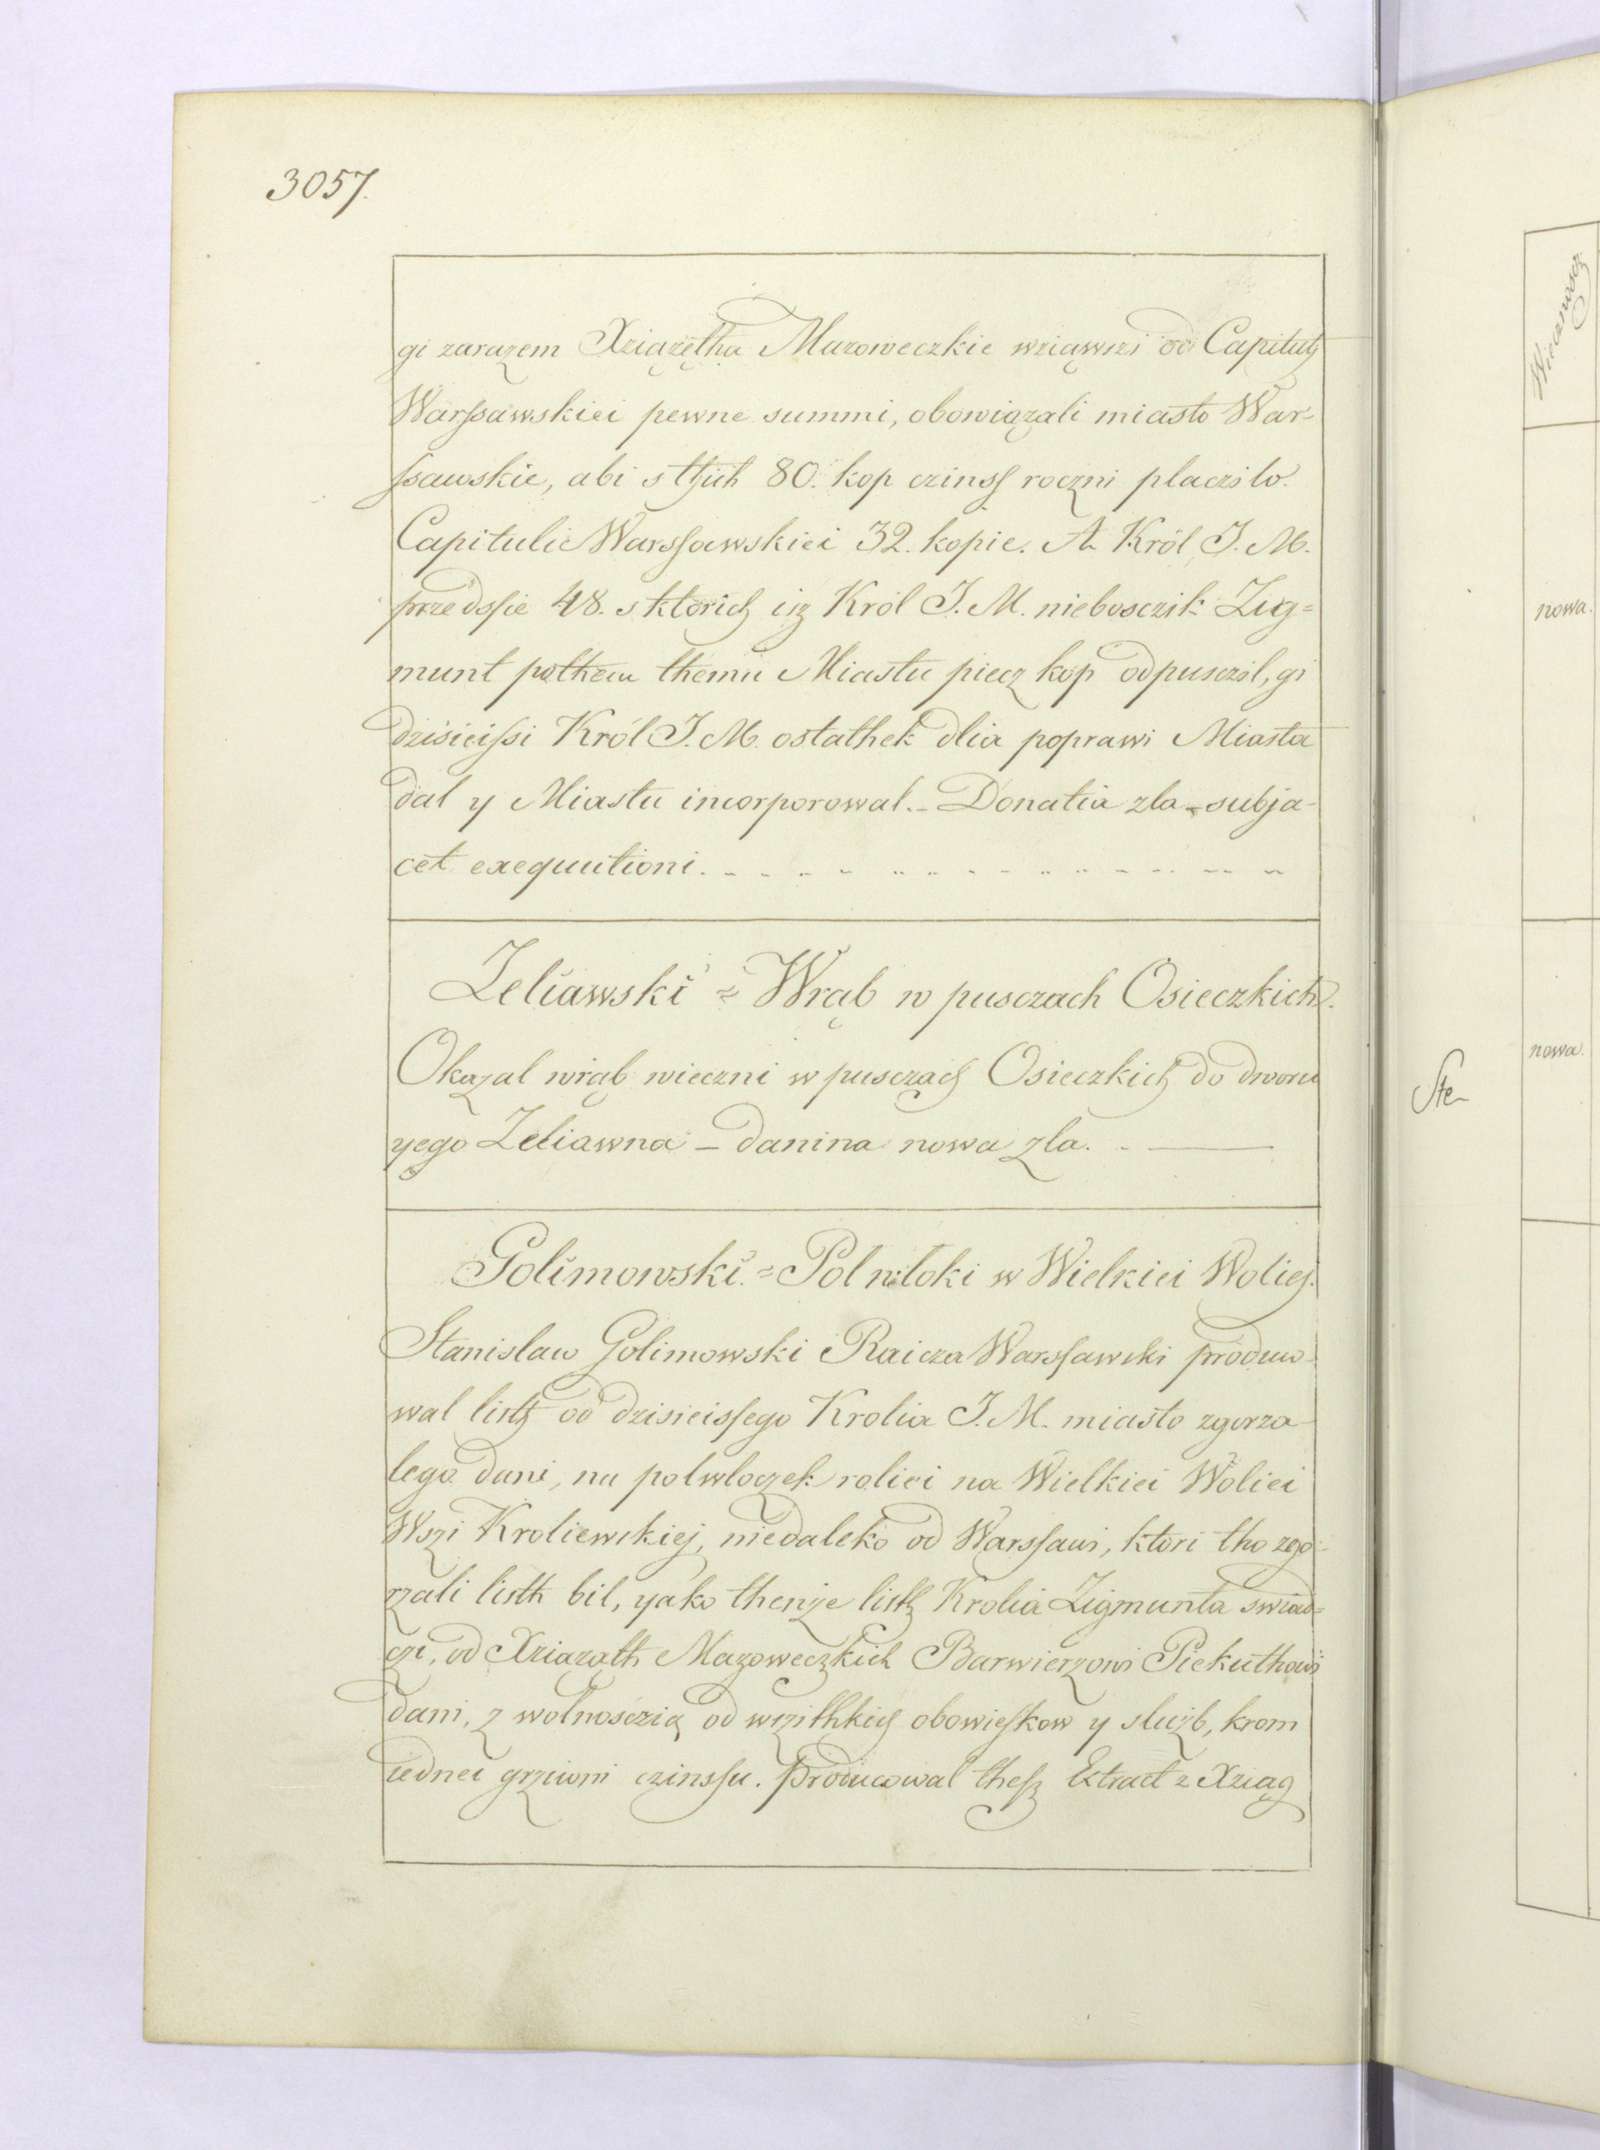 3057.
gi zarazem Xziążętha Mazoweczkie wziąwszi od Capituly
Warssawskiei pewne summi, obowiązali miasto War-
ssawskie, abi s thich 80. kop czinss roczni placzilo.
Capitulie Warssawskiei 32. kopie. A Król J. M.
przedssie 48. s ktorich iż Król J. M. niebosczik Zig=
munt pothem themu Miastu piecz kop odpusczil, gi
dzisieissi Król J. M. ostathek dlia poprawi Miasta
dal y Miastu incorporowal. – Donatia zla – subja-
cet exequutioni.
Zeliawski = Wrąb w pusczach Osieczkich.
Okazal wrąb wieczni w pusczach Osieczkich do dworu
yego Zeliawna – danina nowa zla.
Golimowski. = Pol wloki w Wielkiei Woliej.
Stanislaw Golimowski Raicza Warssawski produco-
wal listh od dzisieissego Krolia J. M. miasto zgorza-
lego dani, na polwloczek roliei na Wielkiei Woliei
Wszi Kroliewskiej, niedaleko od Warssawi, ktori tho zgo-
rzali listh bil, yako thenże listh Krolia Zigmunta swiad=
czi, od Xziazath Mazoweczkich Barwierzowi Piekuthowi
dani, z wolnosczią od wszithkich obowieskow y slużb, krom
iednei grziwni czinssu. Producowal thesz Extract z Xziąg
Wiecznoscz
nowa.
nowa.
Ste